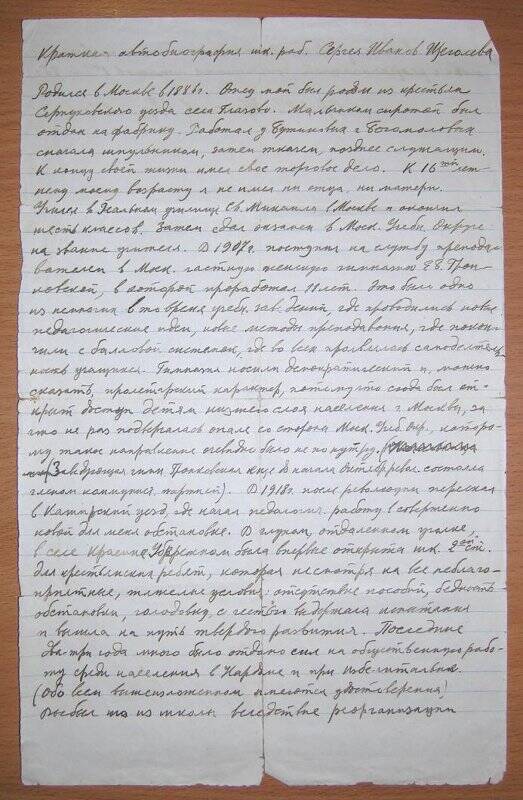 Краткая автобиография шк. раб. Сергея Иванов Щеголева
Родился в Москве в 1886г. Отец мой был родом из крестьян
Серпуховского уезда села Глазово. Мальчиком сиротой был
отдан на фабрику. Работал у Бутикова и Богомоловых
сначала шпульником, затем ткачем, позднее служащим.
К концу своей жизни имел свое торговое дело. К 16тилет-
нему моему возрасту я не имел ни отца, ни матери.
Учился в Реальном училище Св. Михаила в Москве и окончил
шесть классов. Затем сдал экзамен в Моск. Учебн. Округе
на звание учителя. В 1907г. поступил на службу препода-
вателем в Моск. частную женскую гимназию Е.Б. Грон-
ковской, в которой проработал 11 лет. Это было одно
из немногих в то время учебн. заведений, где проводились новые
педагогические идеи, новые методы преподавания, где покон-
чили с балловой системой, где во всем проявлялась самодеятель-
ность учащихся. Гимназия носила демократический и, можно
сказать, пролетарский характер, потому что сюда был от-
крыт доступ детям низшего слоя населения г. Москвы, за
что не раз подвергалась опале со стороны Моск. Учеб. окр., которо-
му такое направление очевидно было не по нутру. (
Заведующая гимн. Гронковская еще до начала Октябр. рев. состояла
членом коммунист. партии). В 1918г. после революции переехал
в уезд, где начал педагогич. работу в совершенно
новой для меня обстановке. В глухом, отдаленном уголке,
в селе Красине Убережном была впервые открыта шк. 2ой ст.
для крестьянских ребят, которая несмотря на все неблаго-
приятные, тяжелые условия: отсутствие пособий, бедность
обстановки, голодовку, с честью выдержала испытания
и вышла на путь твердого развития. Последние
два три года много было отдано сил на общественную рабо-
ту среди населения в Нардоме и при избе-читальне.
(Обо всем вышеизложенном имеются удостоверения)
Выбыл из школы вследствие реорганизации